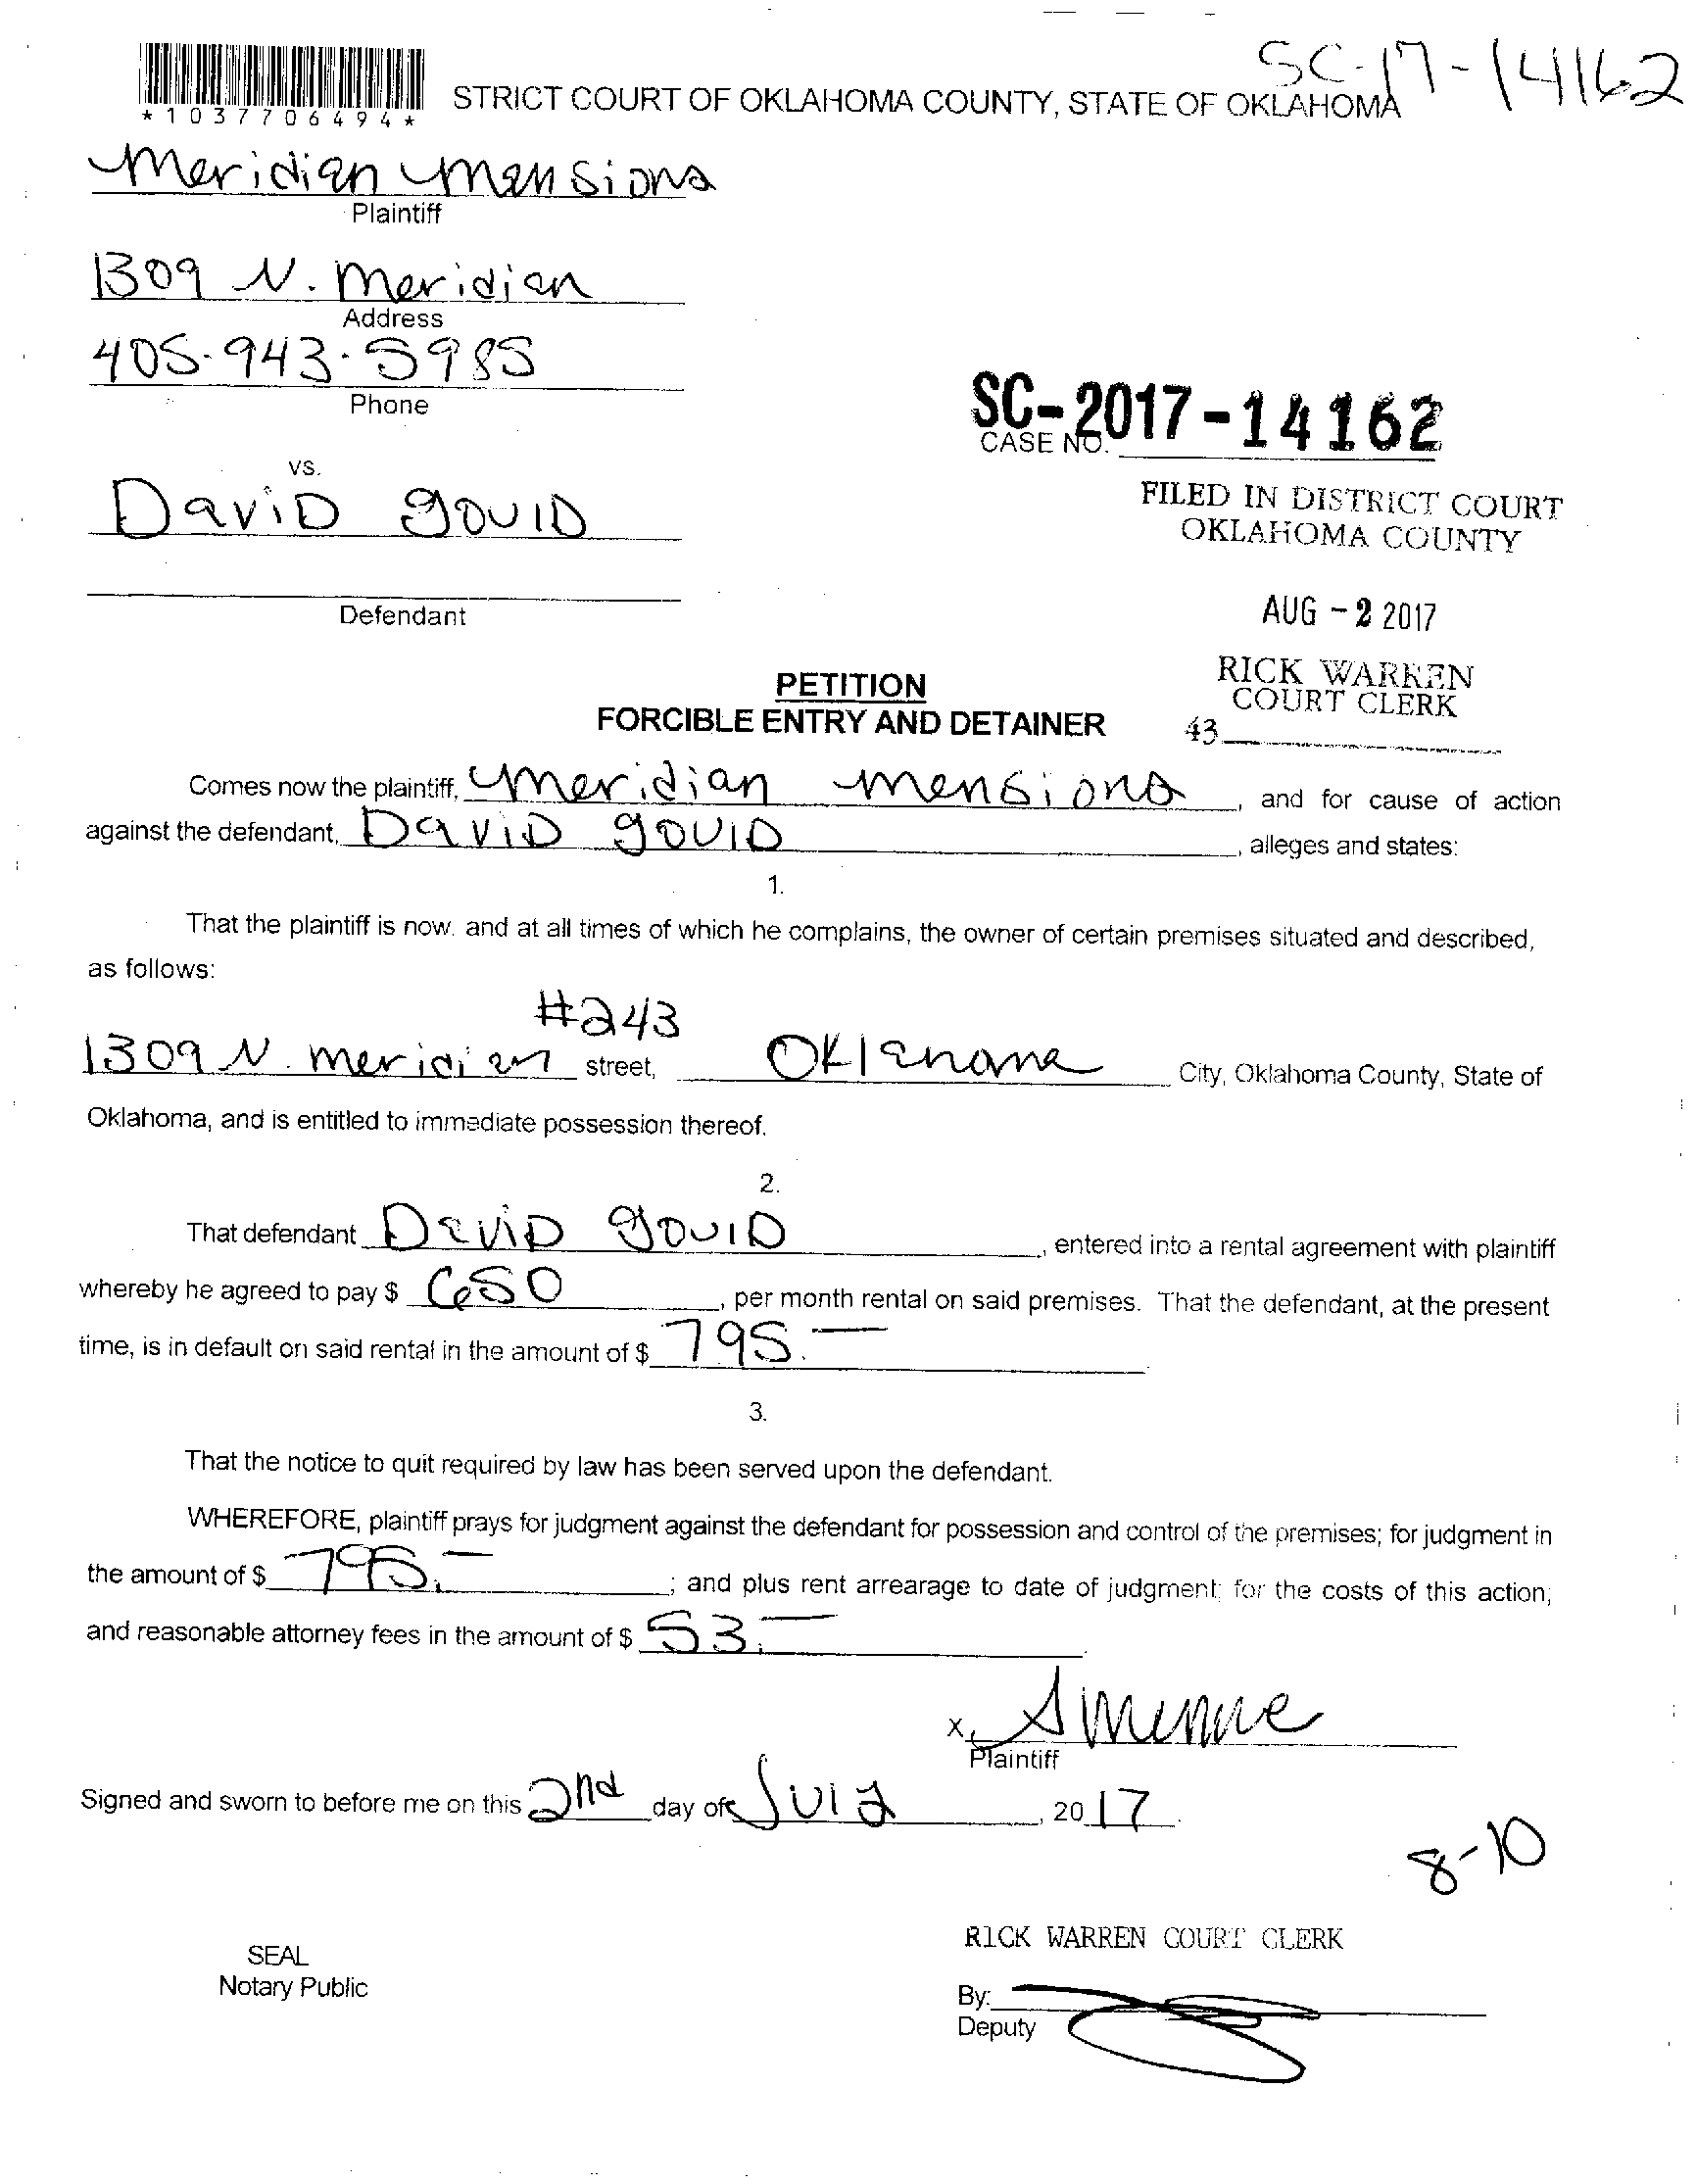 SC-17-14162
*1037706494*
STRICT COURT OF OKLAHOMA COUNTY, STATE OF OKLAHOMA
Meridian Mansions
Plaintiff
1309 N. Meridian
Address
405-943-5985
Phone
SC-2017-14162
CASE NO.
vs.
David Gould
FILED IN DISTRICT COURT
OKLAHOMA COUNTY
Defendant
AUG - 2 2017
RICK WARREN
COURT CLERK
43
PETITION
FORCIBLE ENTRY AND DETAINER
Comes now the plaintiff, Meridian Mansions, and for cause of action
against the defendant, David Gould, alleges and states:
1.
That the plaintiff is now, and at all times of which he complains, the owner of certain premises situated and described,
as follows:
#243
1309 N. Meridian street, Oklahoma City, Oklahoma County, State of
Oklahoma, and is entitled to immediate possession thereof.
2.
That defendant David Gould, entered into a rental agreement with plaintiff
whereby he agreed to pay $ 650, per month rental on said premises. That the defendant, at the present
time, is in default on said rental in the amount of $ 795.—
3.
That the notice to quit required by law has been served upon the defendant.
WHEREFORE, plaintiff prays for judgment against the defendant for possession and control of the premises; for judgment in
the amount of $ 795.—; and plus rent arrearage to date of judgment; for the costs of this action;
and reasonable attorney fees in the amount of $ 53.—
x
Plaintiff
Signed and sworn to before me on this 2nd day of July, 2017.
8-10
RICK WARREN COURT CLERK
SEAL
Notary Public
By:
Deputy